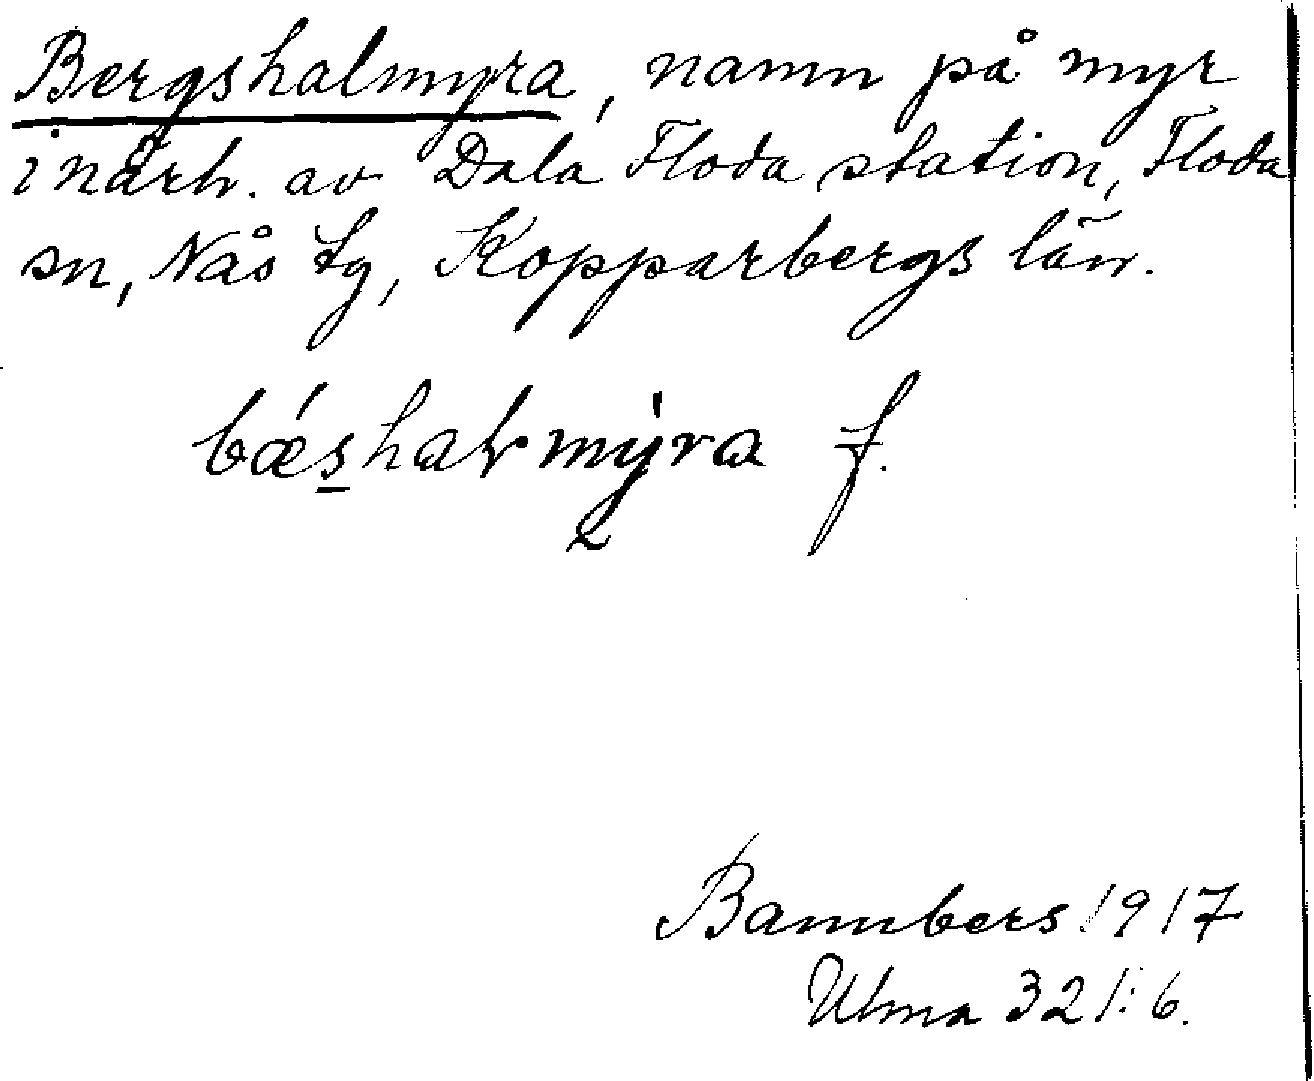 Bergshalmyra, namn på myr
i närh. av Dala Floda station, Floda
sn, Nås tg, Kopparbergs län.
bǽs̲halmýra f.
Bannbers 1917
Ulma 321:6.